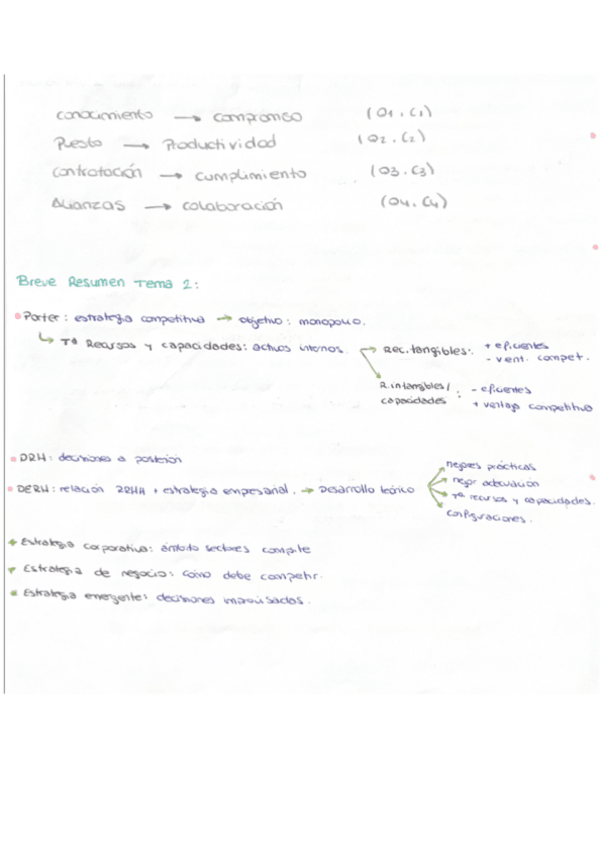 conocimiento → compromiso (O1. C1)
Puesto → Productividad (O2. C2)
Contratación → cumplimiento (O3. C3)
Alianzas → colaboración (O4. C4)
Breve Resumen Tema 2:
Porter: estrategia competitiva → objetivo: monopolio.
↳ Tª Recursos y capacidades: activos internos. → Rec. tangibles: + eficientes
- vent. compet.
R. intangibles/ capacidades : - eficientes
+ ventaja competitiva
DRH: decisiones a posteriori
DERH: relación + estrategia empresarial. → Desarrollo teórico
mejores prácticas
mejor adecuación
Tª recursos y capacidades.
configuraciones.
+ Estrategia corporativa: ámbito sectores compite
Estrategia de negocio: cómo debe competir.
Estrategia emergente: decisiones improvisadas.